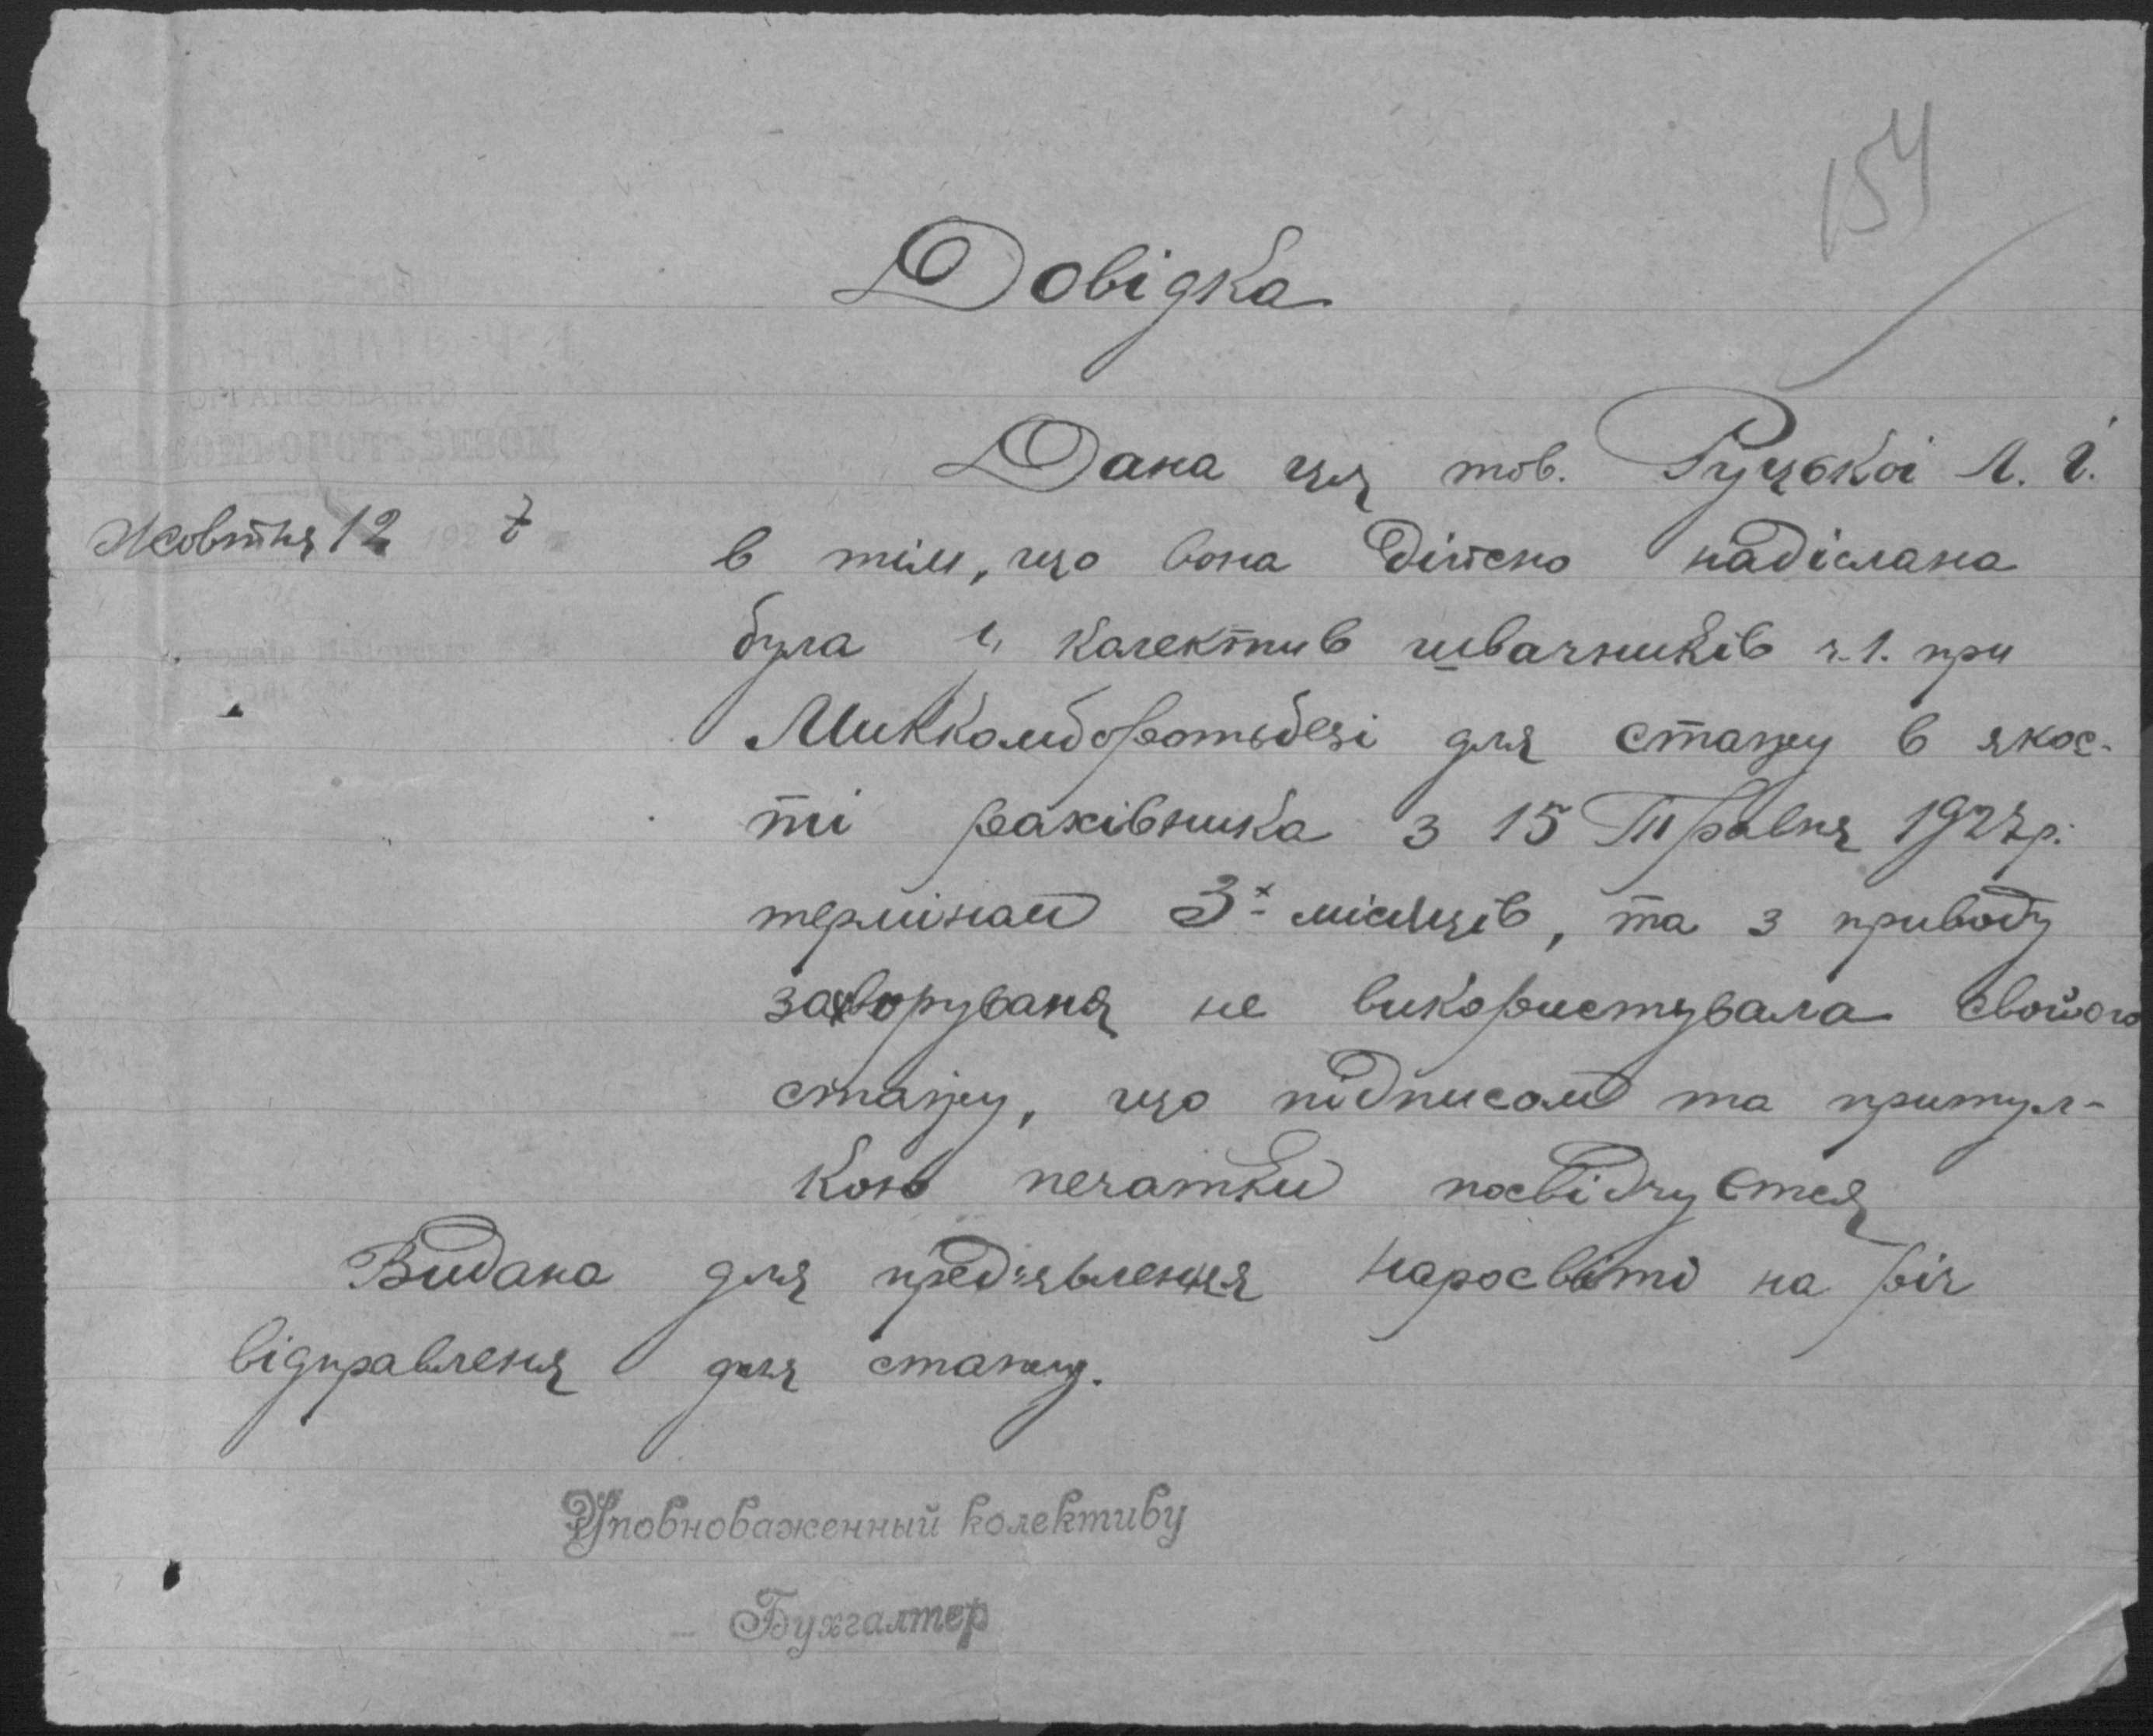 154
Довідка
Дана ця тов. Руцькоі Л. І.
Жовтня 12 1927
в тім, що вона дійсно надіслана
була у колектив швачників ч.1. при
Миккомборотьбезі для стажу в якос-
ті рахівника з 15 Травня 1927р.
терміном 3х місяців, та з приводу
захворуваня не використувала свойого
стажу, що підписом та притул-
кою печатки посвідчуется
Видана для предъявлення Наросвіті на річ
відправленя для стажу.
Уповноваженный колективу
Бухгалтер